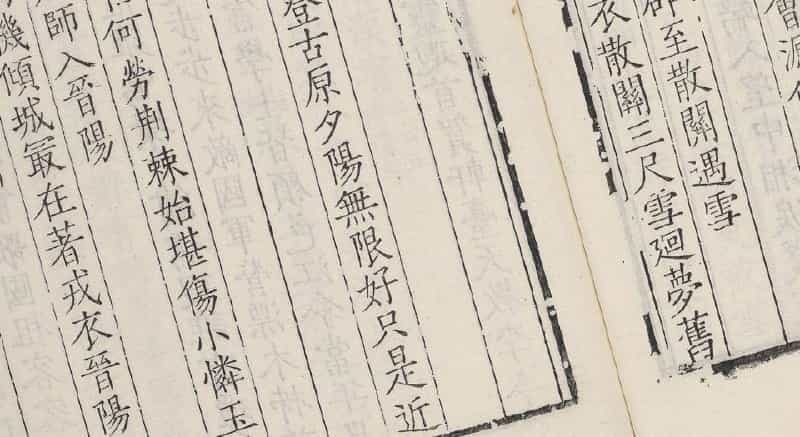 至散關遇雪
衣散關三尺雪廻夢舊
登古原夕陽無限好只是近
何勞荆棘始堪傷小憐玉
師入晉陽
機傾城㝡在著戎衣晉陽